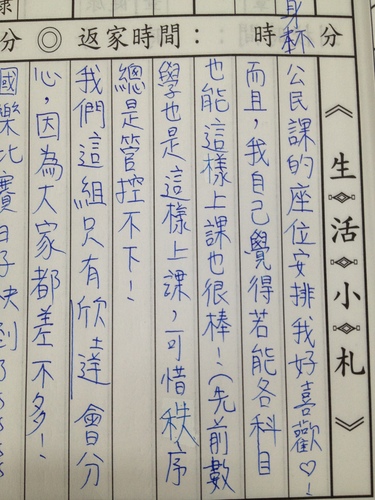 ◎返家時間：　時　分
分
《生活小札》
公民課的座位安排我好喜歡♡！
而且，我自己覺得若能各科目
也能這樣上課也很棒！（先前數
學也是這樣上課，可惜秩序
總是管控不下！
我們這組只有欣達會分
心，因為大家都差不多！
國樂比賽日子快到了